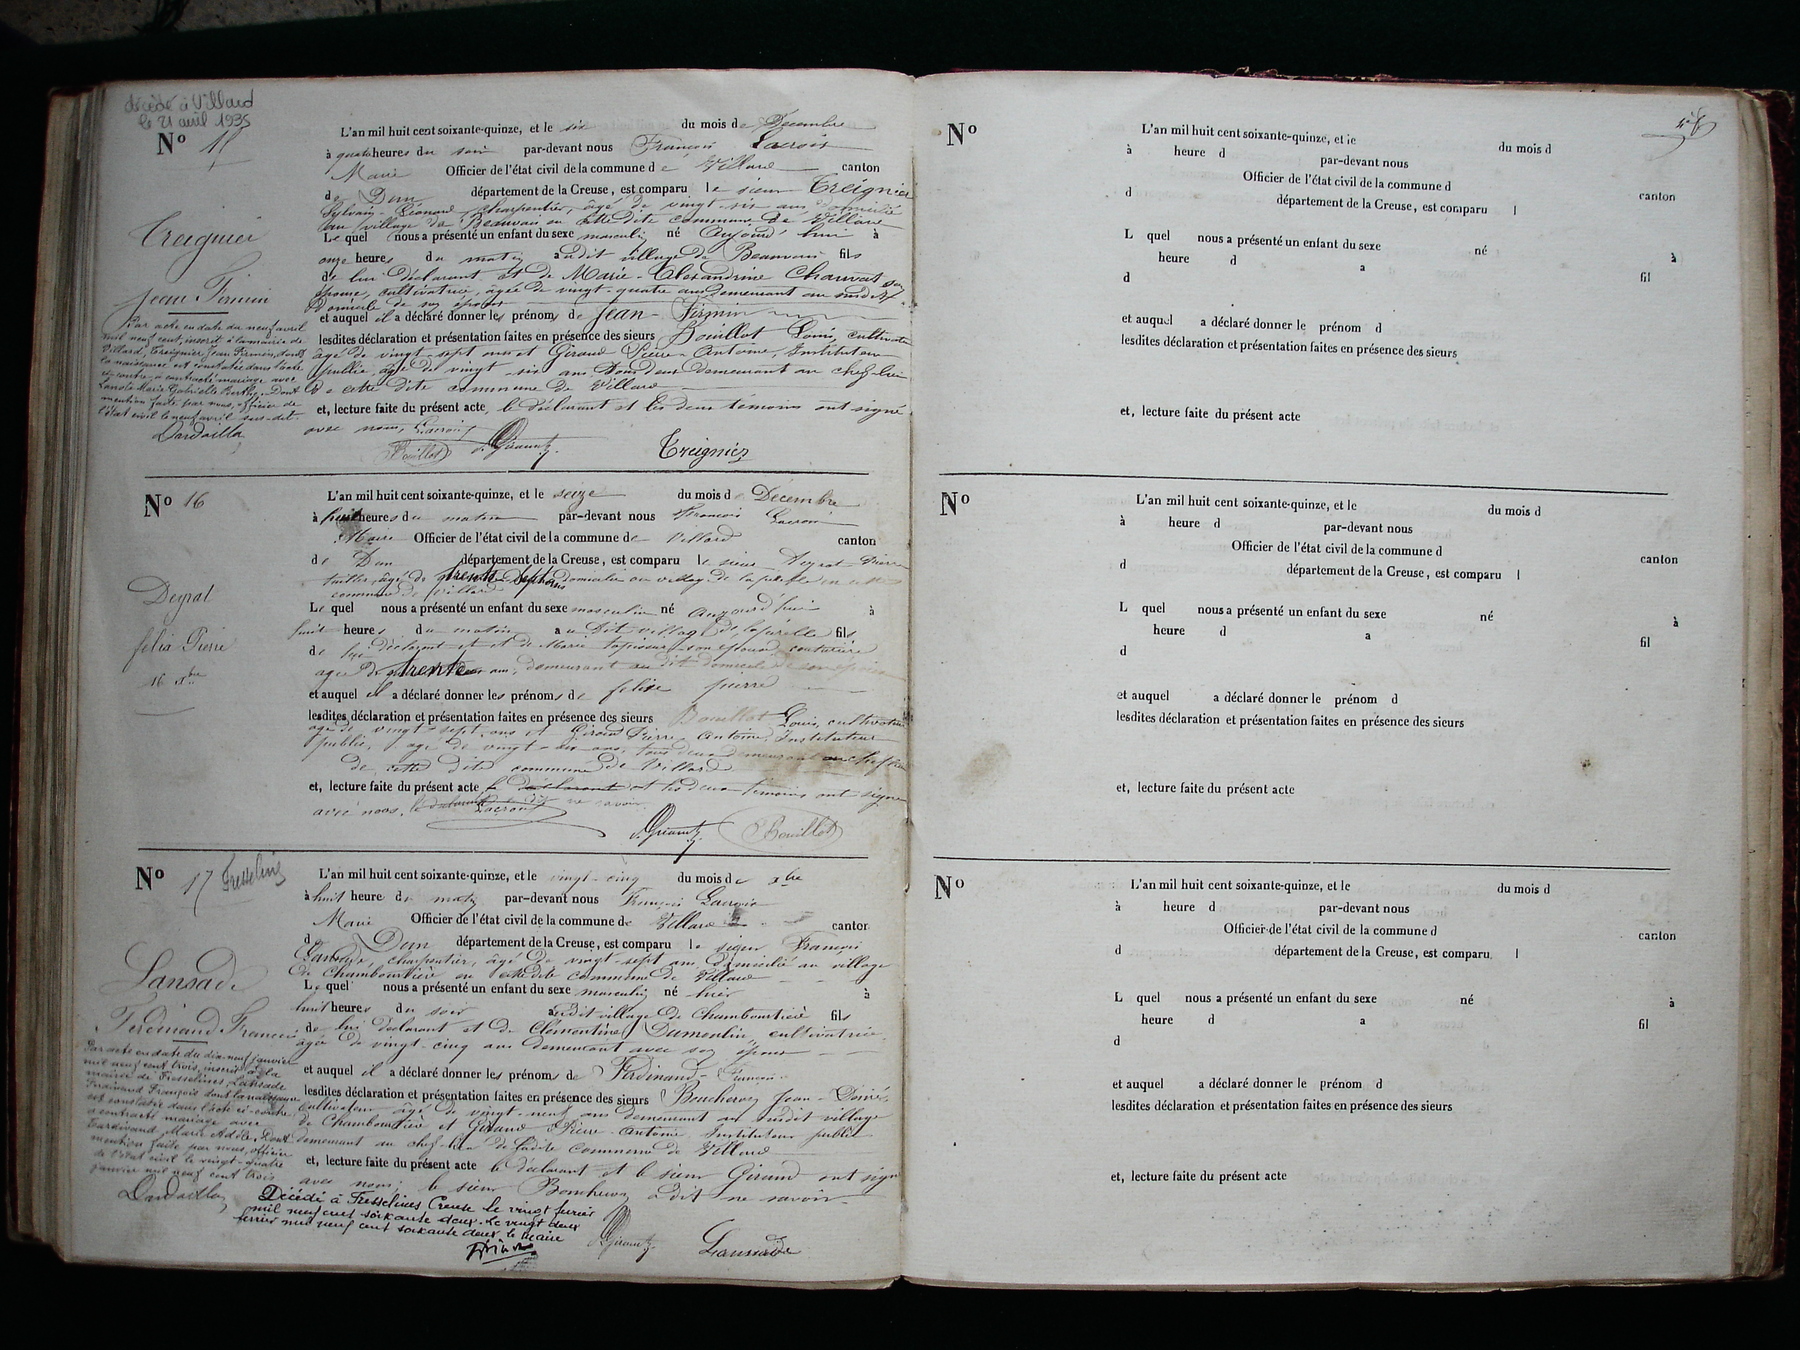 décédé à Villard
le 21 avril 1935
Nº 15
Treignier
Jean Firmin
Par acte en date du neuf avril
mil neuf cent, inscrit à la mairie de
Villard, Treignier Jean Firmin, dont
la naissance est constatée dans l'acte
ci-contre, a contracté mariage avec
Marie Gabrielle Berthe. Dont
mention faite par nous, officier de
l'état civil le neuf avril sus-dit
Dardaillon
L'an mil huit cent soixante-quinze, et le six du mois de Décembre
à quatre heures du soir par-devant nous François Lacroix
Maire Officier de l'état civil de la commune de Villard canton
de Dun département de la Creuse, est comparu le sieur Treignier
Sylvain Léonard, charpentier, âgé de vingt-six ans domicilié
au village de Beauvais en cette dite commune de Villard
Le quel nous a présenté un enfant du sexe masculin né aujourd'hui à
onze heures du matin audit village de Beauvais fils
de lui déclarant et de Marie-Alexandrine Chauvat son
épouse, cultivatrice, âgée de vingt-quatre ans demeurant au susdit
domicile de son époux
et auquel il a déclaré donner les prénoms de Jean-Firmin
lesdites déclaration et présentation faites en présence des sieurs Bouillot Louis, cultivateur
âgé de vingt-sept ans et Giraud Pierre-Antoine, Instituteur
public, âgé de vingt-six ans tous deux demeurant au chef-lieu
de cette dite commune de Villard
et, lecture faite du présent acte, le déclarant et les deux témoins ont signé
avec nous, Lacroix
Bouillot A. Giraud Treignier
Nº 16
Deyrat
félix Pierre
16 xbre
L'an mil huit cent soixante-quinze, et le seize du mois de Décembre
à huit heures du matin par-devant nous François Lacroix
Maire Officier de l'état civil de la commune de Villard canton
de Dun département de la Creuse, est comparu le sieur Deyrat Pierre
âgé de trente sept ans domicilié au village de la en cette
commune de Villard
Le quel nous a présenté un enfant du sexe masculin né aujourd'hui à
huit heures du matin au dit village de fils
de lui déclarant et de Marie son épouse couturière
agée de trente ans, demeurant au dit domicile de son époux
et auquel il a déclaré donner les prénoms de felix pierre
lesdites déclaration et présentation faites en présence des sieurs Bouillot Louis, cultivateur
agé de vingt-sept ans et Giraud Pierre-Antoine, Instituteur
public, age de vingt-six ans, tous deux demeurant au chef lieu
de cette dite commune de Villard
et, lecture faite du présent acte le déclarant et les deux témoins ont signé
avec nous, le déclarant a dit ne savoir.
Lacroix
A. Giraud Bouillot
Nº 17 Fresselines
Lansade
Ferdinand François
Par acte en date du dix-neuf janvier
mil neuf cent trois, inscrit à la
mairie de Fresselines, Lansade
Ferdinand François dont la naissance
est constatée dans l'acte ci-contre
a contracté mariage avec
Marie Adèle. Dont
mention faite par nous, officier
de l'état civil le vingt-quatre
janvier mil neuf cent trois
Dardaillon
L'an mil huit cent soixante-quinze, et le vingt-cinq du mois de xbre
à huit heure du matin par-devant nous François Lacroix
Maire Officier de l'état civil de la commune de Villard canton
de Dun département de la Creuse, est comparu le sieur François
Lansade, charpentier, âgé de vingt-sept ans domicilié au village
de Chambourtière en cette dite commune de Villard
Le quel nous a présenté un enfant du sexe masculin né hier à
huit heures du soir audit village de Chambourtière fils
de lui déclarant et de Clémentine Dumoulin, cultivatrice,
âgée de vingt-cinq ans demeurant avec son époux
et auquel il a déclaré donner les prénoms de Ferdinand-François
lesdites déclaration et présentation faites en présence des sieurs Jean-Désiré,
cultivateur âgé de vingt-neuf ans demeurant au susdit village
de Chambourtière et Giraud Pierre-Antoine Instituteur public
demeurant au chef-lieu de ladite commune de Villard
et, lecture faite du présent acte le déclarant et le sieur Giraud ont signé
avec nous; le sieur a dit ne savoir
Décédé à Fresselines Creuse le vingt février
mil neuf cent soixante deux. Le vingt deux
février mil neuf cent soixante deux le maire
A. Giraud Lansade
Nº
L'an mil huit cent soixante-quinze, et le du mois d
à heure d par-devant nous
Officier de l'état civil de la commune d canton
d département de la Creuse, est comparu l
L quel nous a présenté un enfant du sexe né à
heure d a fil
d
et auquel a déclaré donner le prénom d
lesdites déclaration et présentation faites en présence des sieurs
et, lecture faite du présent acte
Nº
L'an mil huit cent soixante-quinze, et le du mois d
à heure d par-devant nous
Officier de l'état civil de la commune d canton
d département de la Creuse, est comparu l
L quel nous a présenté un enfant du sexe né à
heure d a fil
d
et auquel a déclaré donner le prénom d
lesdites déclaration et présentation faites en présence des sieurs
et, lecture faite du présent acte
Nº
L'an mil huit cent soixante-quinze, et le du mois d
à heure d par-devant nous
Officier de l'état civil de la commune d canton
d département de la Creuse, est comparu l
L quel nous a présenté un enfant du sexe né à
heure d a fil
d
et auquel a déclaré donner le prénom d
lesdites déclaration et présentation faites en présence des sieurs
et, lecture faite du présent acte